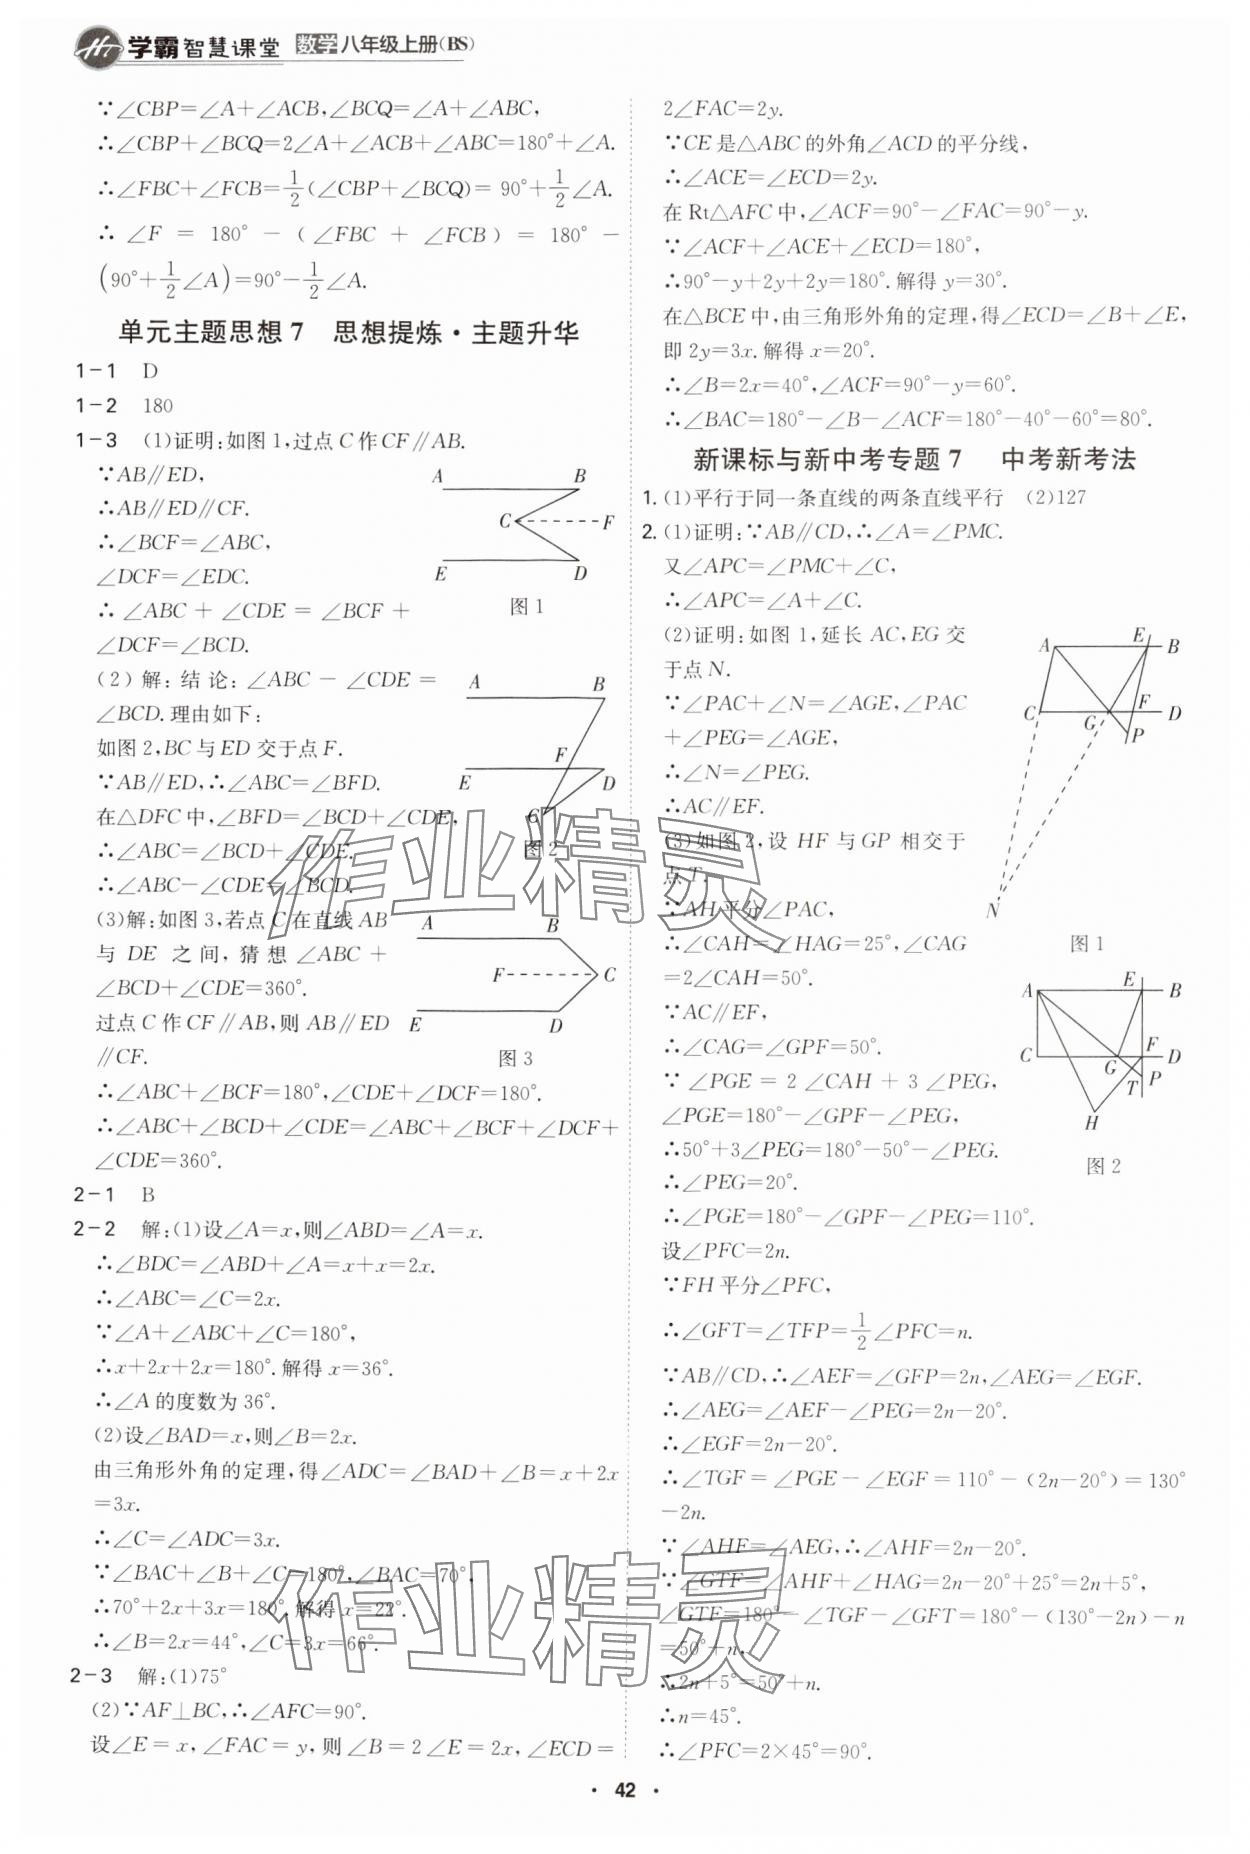 学霸智慧课堂 数学八年级上册(BS)
∵∠CBP=∠A+∠ACB,∠BCQ=∠A+∠ABC,
∴∠CBP+∠BCQ=2∠A+∠ACB+∠ABC=180°+∠A.
∴∠FBC+∠FCB=1/2(∠CBP+∠BCQ)= 90°+1/2∠A.
∴ ∠F = 180° - ( ∠FBC + ∠FCB ) = 180° -
(90°+1/2∠A)=90°-1/2∠A.
单元主题思想7 思想提炼·主题升华
1-1 D
1-2 180
1-3 (1)证明:如图1,过点C作CF∥AB.
∵AB∥ED,
∴AB∥ED∥CF.
∴∠BCF=∠ABC,
∠DCF=∠EDC.
∴ ∠ABC + ∠CDE = ∠BCF +
∠DCF=∠BCD.
A B
C F
E D
图1
(2) 解: 结论: ∠ABC - ∠CDE =
∠BCD.理由如下:
如图2,BC与ED交于点F.
∵AB∥ED,∴∠ABC=∠BFD.
在△DFC中,∠BFD=∠BCD+∠CDE,
∴∠ABC=∠BCD+∠CDE.
∴∠ABC-∠CDE=∠BCD.
A B
F
E D
C
图2
(3)解:如图3,若点C在直线AB
与 DE 之间, 猜想 ∠ABC +
∠BCD+∠CDE=360°.
过点C作CF∥AB,则AB∥ED
∥CF.
A B
F C
E D
图3
∴∠ABC+∠BCF=180°,∠CDE+∠DCF=180°.
∴∠ABC+∠BCD+∠CDE=∠ABC+∠BCF+∠DCF+
∠CDE=360°.
2-1 B
2-2 解:(1)设∠A=x,则∠ABD=∠A=x.
∴∠BDC=∠ABD+∠A=x+x=2x.
∴∠ABC=∠C=2x.
∵∠A+∠ABC+∠C=180°,
∴x+2x+2x=180°.解得x=36°.
∴∠A的度数为36°.
(2)设∠BAD=x,则∠B=2x.
由三角形外角的定理,得∠ADC=∠BAD+∠B=x+2x
=3x.
∴∠C=∠ADC=3x.
∵∠BAC+∠B+∠C=180°,∠BAC=70°,
∴70°+2x+3x=180°.解得x=22°.
∴∠B=2x=44°,∠C=3x=66°.
2-3 解:(1)75°
(2)∵AF⊥BC,∴∠AFC=90°.
设∠E=x,∠FAC=y,则∠B=2∠E=2x,∠ECD=
2∠FAC=2y.
∵CE是△ABC的外角∠ACD的平分线,
∴∠ACE=∠ECD=2y.
在Rt△AFC中,∠ACF=90°-∠FAC=90°-y.
∵∠ACF+∠ACE+∠ECD=180°,
∴90°-y+2y+2y=180°.解得y=30°.
在△BCE中,由三角形外角的定理,得∠ECD=∠B+∠E,
即2y=3x.解得x=20°.
∴∠B=2x=40°,∠ACF=90°-y=60°.
∴∠BAC=180°-∠B-∠ACF=180°-40°-60°=80°.
新课标与新中考专题7 中考新考法
1. (1)平行于同一条直线的两条直线平行 (2)127
2. (1)证明:∵AB∥CD,∴∠A=∠PMC.
又∠APC=∠PMC+∠C,
∴∠APC=∠A+∠C.
(2)证明:如图1,延长AC,EG交
于点N.
∵∠PAC+∠N=∠AGE,∠PAC
+∠PEG=∠AGE,
∴∠N=∠PEG.
∴AC∥EF.
A E B
C G F D
P
N
图1
(3)如图2,设 HF 与 GP 相交于
点T.
∵AH平分∠PAC,
∴∠CAH=∠HAG=25°,∠CAG
=2∠CAH=50°.
∵AC∥EF,
∴∠CAG=∠GPF=50°.
∵ ∠PGE = 2 ∠CAH + 3 ∠PEG,
∠PGE=180°-∠GPF-∠PEG,
∴50°+3∠PEG=180°-50°-∠PEG.
A E B
C G F D
T P
H
图2
∴∠PEG=20°.
∴∠PGE=180°-∠GPF-∠PEG=110°.
设∠PFC=2n.
∵FH平分∠PFC,
∴∠GFT=∠TFP=1/2∠PFC=n.
∵AB∥CD,∴∠AEF=∠GFP=2n,∠AEG=∠EGF.
∴∠AEG=∠AEF-∠PEG=2n-20°.
∴∠EGF=2n-20°.
∴∠TGF=∠PGE-∠EGF=110°-(2n-20°)=130°
-2n.
∵∠AHF=∠AEG,∴∠AHF=2n-20°.
∵∠GTF=∠AHF+∠HAG=2n-20°+25°=2n+5°,
∠GTF=180°-∠TGF-∠GFT=180°-(130°-2n)-n
=50°+n,
∴2n+5°=50°+n.
∴n=45°.
∴∠PFC=2×45°=90°.
作业精灵
作业精灵
· 42 ·